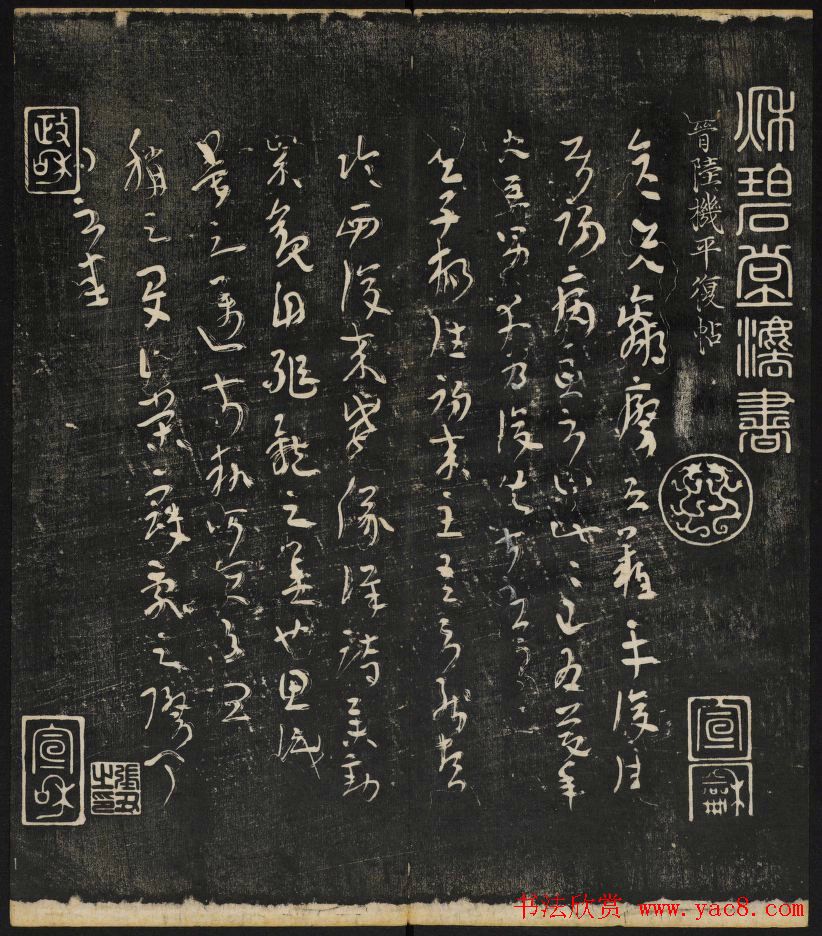 秋碧堂法書
晉陸機平復帖
彦先羸瘵恐難平復往
屬初病慮不止此此已為慶承
使唯男幸為復失前憂耳
吳子楊往初來主吾不能盡
臨西復來威儀詳跱舉動
成觀自軀體之美也思識
量之邁前執所恒有宜
稱之夏伯榮寇亂之際聞
問不悉
宣龢
政和
宣和
張丑之印
书法欣赏 www.yac8.com